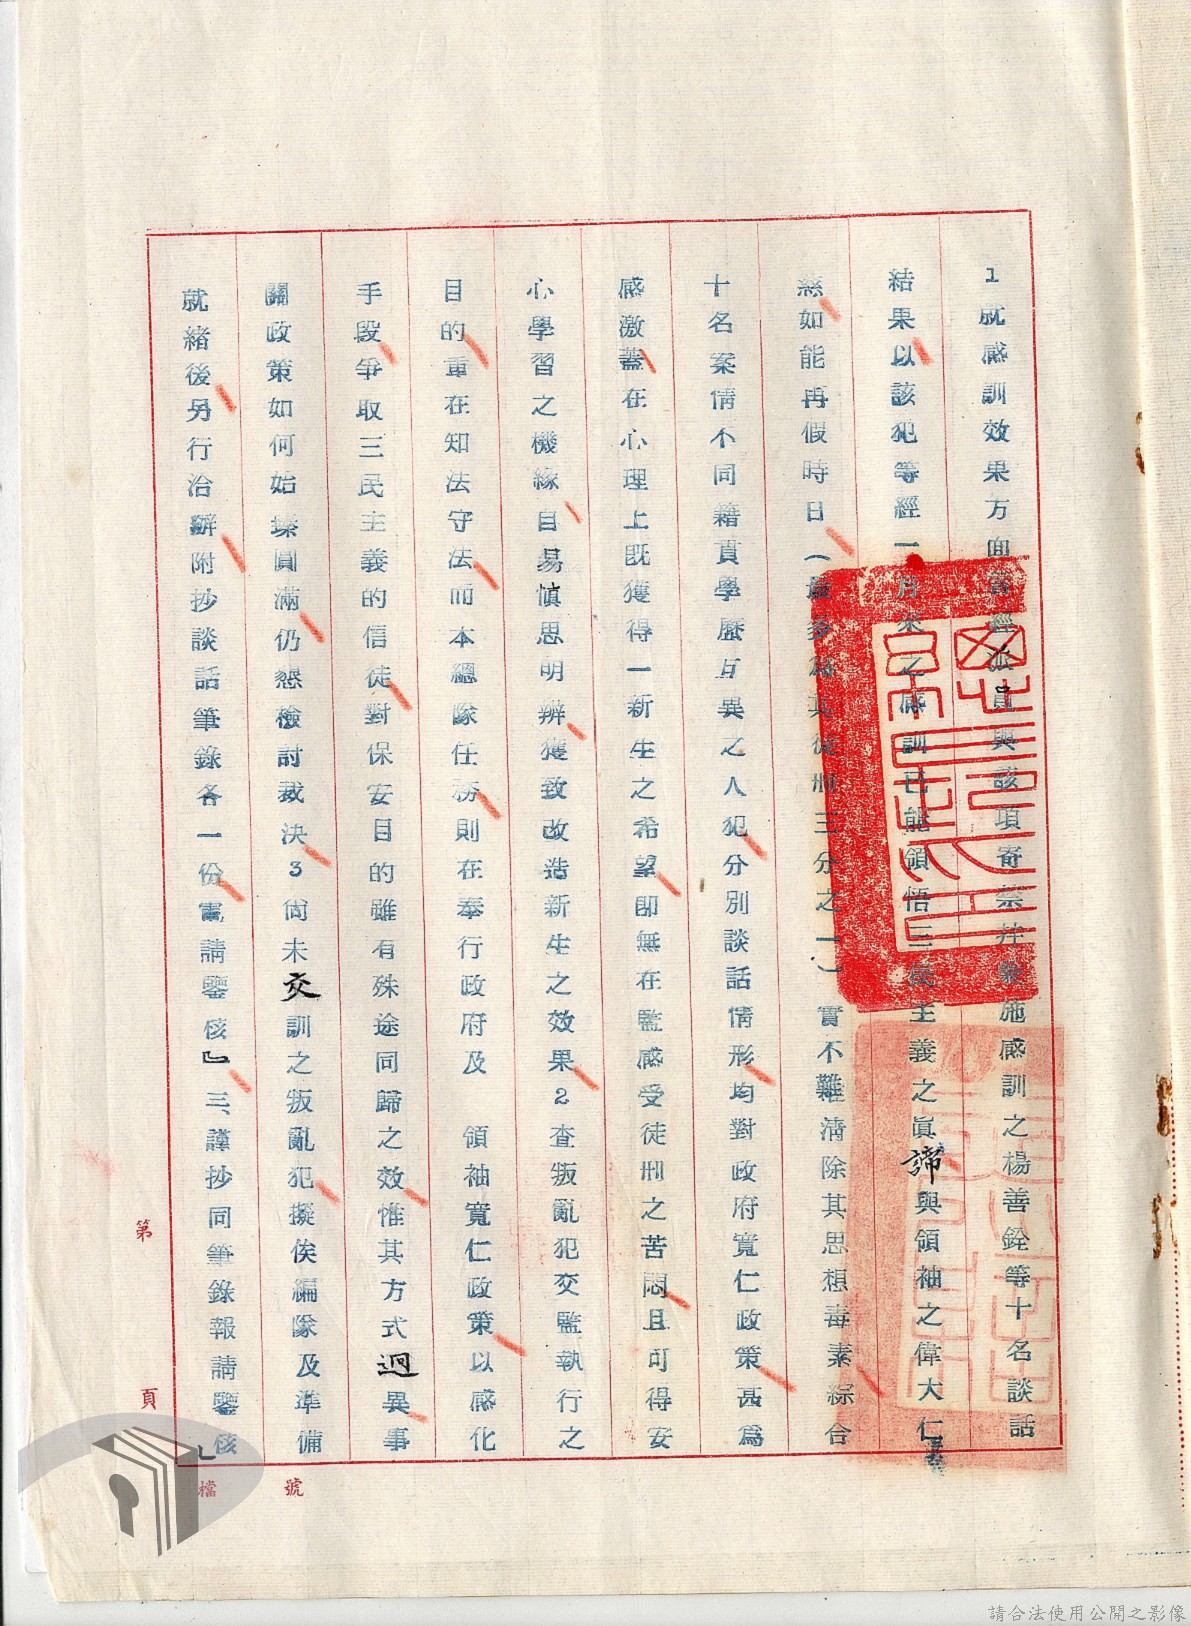 1就感訓效果方面言經派員與該項寄禁幷參施感訓之楊善銓等十名談話
結果以該犯等經一月來之感訓已能領悟三民主義之眞諦與領袖之偉大仁
慈如能再假時日(最多為其徒刑三分之一)實不難清除其思想毒素綜合
十名案情不同籍貫學歷互異之人犯分別談話情形均對政府寬仁政策甚爲
感激蓋在心理上既獲得一新生之希望即無在監感受徒刑之苦悶且可得安
心學習之機緣自易愼思明辨獲致改造新生之效果2查叛亂犯交監執行之
目的重在知法守法而本總隊任務則在奉行政府及 領袖寬仁政策以感化
手段爭取三民主義的信徒對保安目的雖有殊途同歸之效惟其方式迥異事
關政策如何始臻圓滿仍懇檢討裁決3尚未交訓之叛亂犯擬俟編隊及準備
就緒後另行洽辦附抄談話筆錄各一份憲請鑒核』三、謹抄同筆錄報請鑒核」
第 頁
檔 號
請合法使用公開之影像